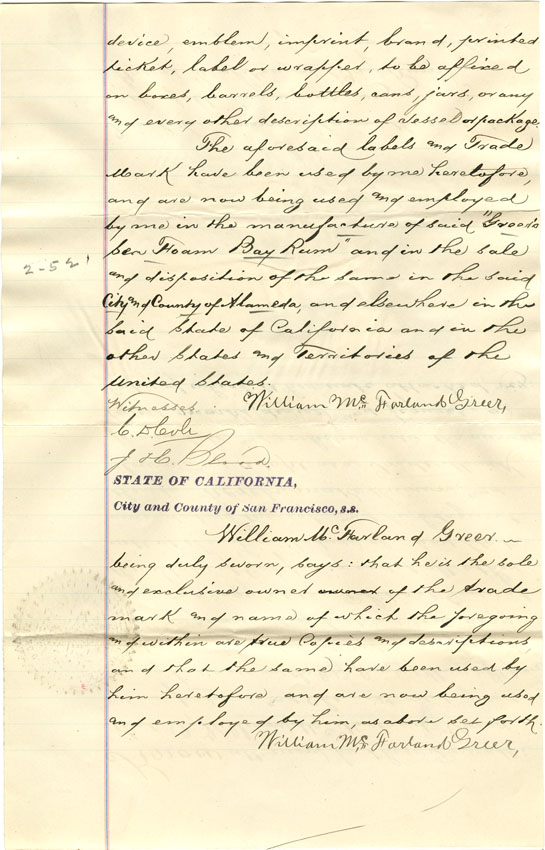 device, emblem, imprint, brand, printed
ticket, label or wrapper, to be affixed
on boxes, barrels, bottles, cans, jars, or any
and every other description of vessel or package.
The aforesaid labels and Trade
Mark have been used by me heretofore,
and are now being used and employed
by me in the manufacture of said "Greer's
Sea Foam Bay Rum" and in the sale
2-52'
and disposition of the same in the said
City and County of Alameda, and elsewhere in the
said State of California and in the
other States and Territories of the
United States.
Witnesses William Mc Farland Greer,
C. D. Cole
J. H.
STATE OF CALIFORNIA,
City and County of San Francisco, s.s.
William Mc Farland Greer
being duly sworn, says: that he is the sole
and exclusive owner owner of the trade
mark and name of which the foregoing
and within are true Copies and descriptions
and that the same have been used by
him heretofore and are now being used
and employed by him, as above set forth.
William Mc Farland Greer,